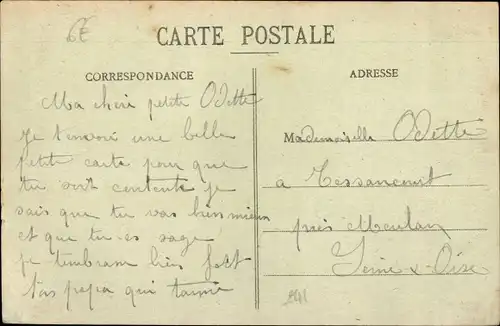 6E
CARTE POSTALE
CORRESPONDANCE
Ma chère petite Odette
je t'envoie une belle
petite carte pour que
tu soit contente je
sais que tu vas bien mieux
et que tu es sage
je t'embrasse bien fort
Ton papa qui t'aime
ADRESSE
Mademoiselle Odette
à Tessancourt
près Meulan
Seine & Oise